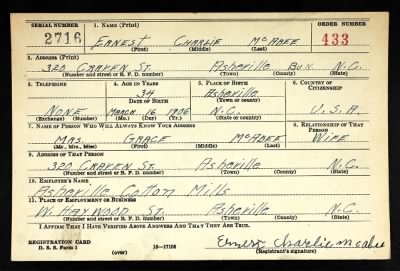 SERIAL NUMBER 1. NAME (Print) ORDER NUMBER
2716 ERNEST CHARLIE McABEE 433
(First) (Middle) (Last)
2. ADDRESS (Print)
320 CRAVEN ST. Asheville BUN. N.C.
(Number and street or R. F. D. number) (Town) (County) (State)
3. TELEPHONE 4. AGE IN YEARS 5. PLACE OF BIRTH 6. COUNTRY OF CITIZENSHIP
34 Asheville
DATE OF BIRTH (Town or county)
NONE MARCH 16 1906 N.C. U.S.A.
(Exchange) (Number) (Mo.) (Day) (Yr.) (State or country)
7. NAME OF PERSON WHO WILL ALWAYS KNOW YOUR ADDRESS 8. RELATIONSHIP OF THAT PERSON
MRS. GRACE McABEE WIFE
(Mr., Mrs., Miss) (First) (Middle) (Last)
9. ADDRESS OF THAT PERSON
320 CRAVEN ST. Asheville N.C.
(Number and street or R. F. D. number) (Town) (County) (State)
10. EMPLOYER'S NAME
Asheville Cotton Mills
11. PLACE OF EMPLOYMENT OR BUSINESS
W. HAYWOOD ST. Asheville N.C.
(Number and street or R. F. D. number) (Town) (County) (State)
I AFFIRM THAT I HAVE VERIFIED ABOVE ANSWERS AND THAT THEY ARE TRUE.
REGISTRATION CARD
D. S. S. Form 1 16—17105 Ernest Charlie McAbee
(over) (Registrant's signature)